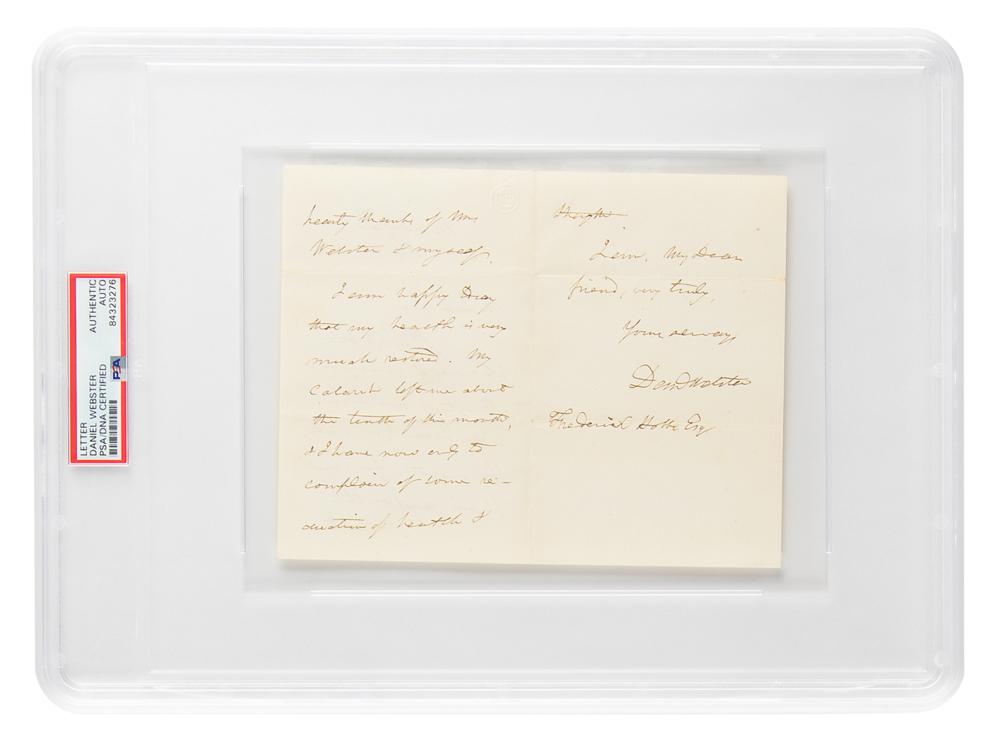 LETTER
DANIEL WEBSTER
PSA/DNA CERTIFIED
AUTHENTIC
AUTO
84323276
PSA
hearty thanks of Mrs
Webster & myself.
I am happy
that my health is very
much restored. My
Catarrh left me about
the tenth of this month,
& I have now only to
complain of some re-
duction of health &
I am, My Dear
friend, very truly,
Yours always
Danl Webster
Frederick Esq